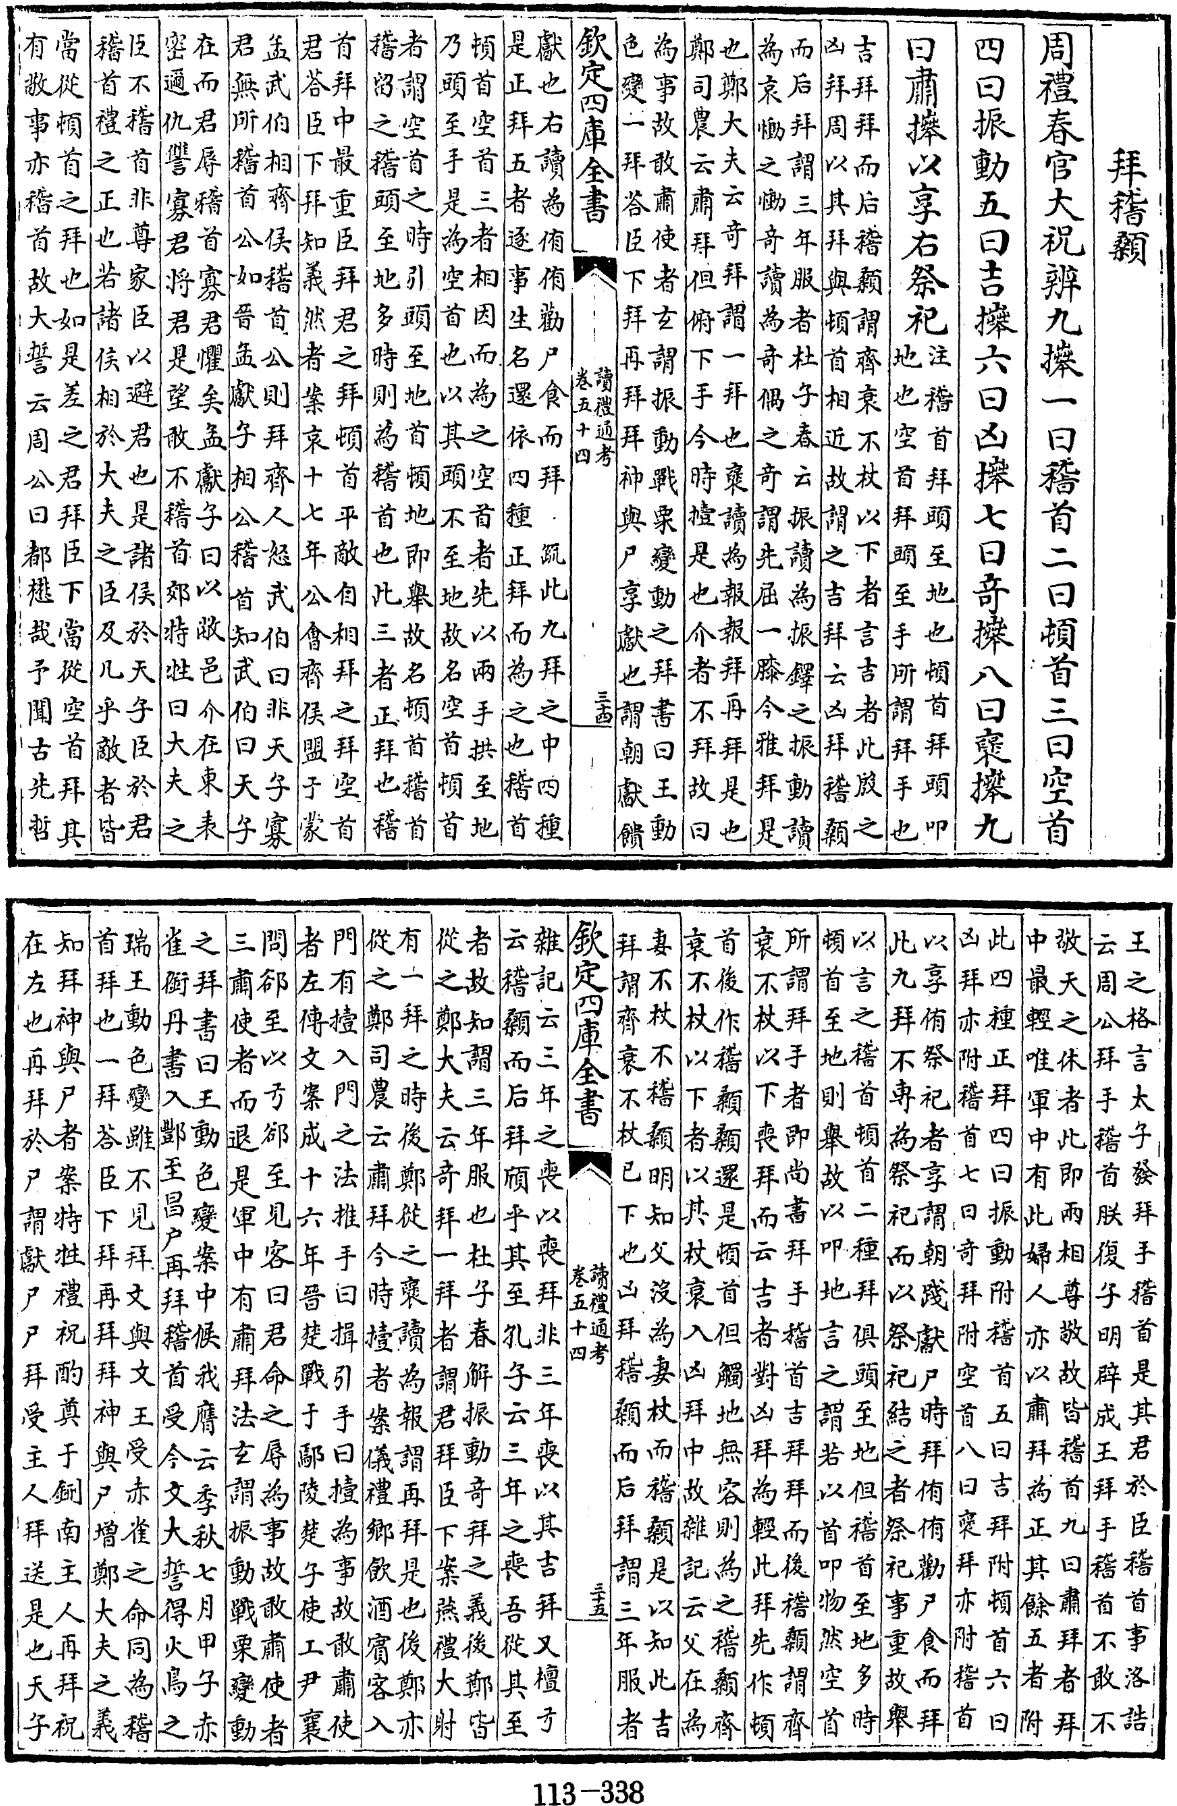 拜稽顙
周禮春官大祝辨九㩵一曰稽首二曰頓首三曰空首
四曰振動五曰吉㩵六曰凶㩵七曰奇㩵八曰襃㩵九
曰肅㩵以享右祭祀
注稽首拜頭至地也頓首拜頭叩
地也空首拜頭至手所謂拜手也
吉拜拜而后稽顙謂齊衰不杖以下者言吉者此殷之
凶拜周以其拜與頓首相近故謂之吉拜云凶拜稽顙
而后拜謂三年服者杜子春云振讀為振鐸之振動讀
為哀慟之慟奇讀為奇偶之奇謂先屈一膝今雅拜是
也鄭大夫云奇拜謂一拜也襃讀為報報拜再拜是也
鄭司農云肅拜但俯下手今時撎是也介者不拜故曰
為事故敢肅使者玄謂振動戰栗變動之拜書曰王動
色變一拜荅臣下拜再拜拜神與尸享獻也謂朝獻饋
欽定四庫全書
讀禮通考
卷五十四
三十四
獻也右讀為侑侑勸尸食而拜 疏此九拜之中四種
是正拜五者逐事生名還依四種正拜而為之也稽首
頓首空首三者相因而為之空首者先以兩手拱至地
乃頭至手是為空首也以其頭不至地故名空首頓首
者謂空首之時引頭至地首頓地即舉故名頓首稽首
稽留之稽頭至地多時則為稽首也此三者正拜也稽
首拜中最重臣拜君之拜頓首平敵自相拜之拜空首
君荅臣下拜知義然者案哀十七年公會齊侯盟于蒙
孟武伯相齊侯稽首公則拜齊人怒武伯曰非天子寡
君無所稽首公如晉孟獻子相公稽首知武伯曰天子
在而君辱稽首寡君懼矣孟獻子曰以敝邑介在東表
密邇仇讐寡君將君是望敢不稽首郊特牲曰大夫之
臣不稽首非尊家臣以避君也是諸侯於天子臣於君
稽首禮之正也若諸侯相於大夫之臣及凡乎敵者皆
當從頓首之拜也如是差之君拜臣下當從空首拜其
有敬事亦稽首故大誓云周公曰都懋哉予聞古先哲
王之格言太子發拜手稽首是其君於臣稽首事洛誥
云周公拜手稽首朕復子明辟成王拜手稽首不敢不
敬天之休者此即兩相尊敬故皆稽首九曰肅拜者拜
中最輕唯軍中有此婦人亦以肅拜為正其餘五者附
此四種正拜四曰振動附稽首五曰吉拜附頓首六曰
凶拜亦附稽首七曰奇拜附空首八曰襃拜亦附稽首
以享侑祭祀者享謂朝踐獻尸時拜侑侑勸尸食而拜
此九拜不專為祭祀而以祭祀結之者祭祀事重故舉
以言之稽首頓首二種拜俱頭至地但稽首至地多時
頓首至地則舉故以叩地言之謂若以首叩物然空首
所謂拜手者即尚書拜手稽首吉拜拜而後稽顙謂齊
衰不杖以下喪拜而云吉者對凶拜為輕此拜先作頓
首後作稽顙顙還是頓首但觸地無容則為之稽顙齊
衰不杖以下者以其杖衰入凶拜中故雜記云父在為
妻不杖不稽顙明知父沒為妻杖而稽顙是以知此吉
拜謂齊衰不杖已下也凶拜稽顙而后拜謂三年服者
欽定四庫全書
讀禮通考
卷五十四
三十五
雜記云三年之喪以喪拜非三年喪以其吉拜又檀弓
云稽顙而后拜頎乎其至孔子云三年之喪吾從其至
者故知謂三年服也杜子春解振動奇拜之義後鄭皆
從之鄭大夫云奇拜一拜者謂君拜臣下案燕禮大射
有一拜之時後鄭從之襃讀為報謂再拜是也後鄭亦
從之鄭司農云肅拜今時撎者案儀禮鄉飲酒賓客入
門有撎入門之法推手曰揖引手曰撎為事故敢肅使
者左傳文案成十六年晉楚戰于鄢陵楚子使工尹襄
問郤至以弓郤至見客曰君命之辱為事故敢肅使者
三肅使者而退是軍中有肅拜法玄謂振動戰栗變動
之拜書曰王動色變案中候我膺云季秋七月甲子赤
雀銜丹書入酆至昌戶再拜稽首受今文大誓得火烏之
瑞王動色變雖不見拜文與文王受赤雀之命同為稽
首拜也一拜荅臣下拜再拜拜神與尸增鄭大夫之義
知拜神與尸者案特牲禮祝酌奠于鉶南主人再拜祝
在左也再拜於尸謂獻尸尸拜受主人拜送是也天子
113-338